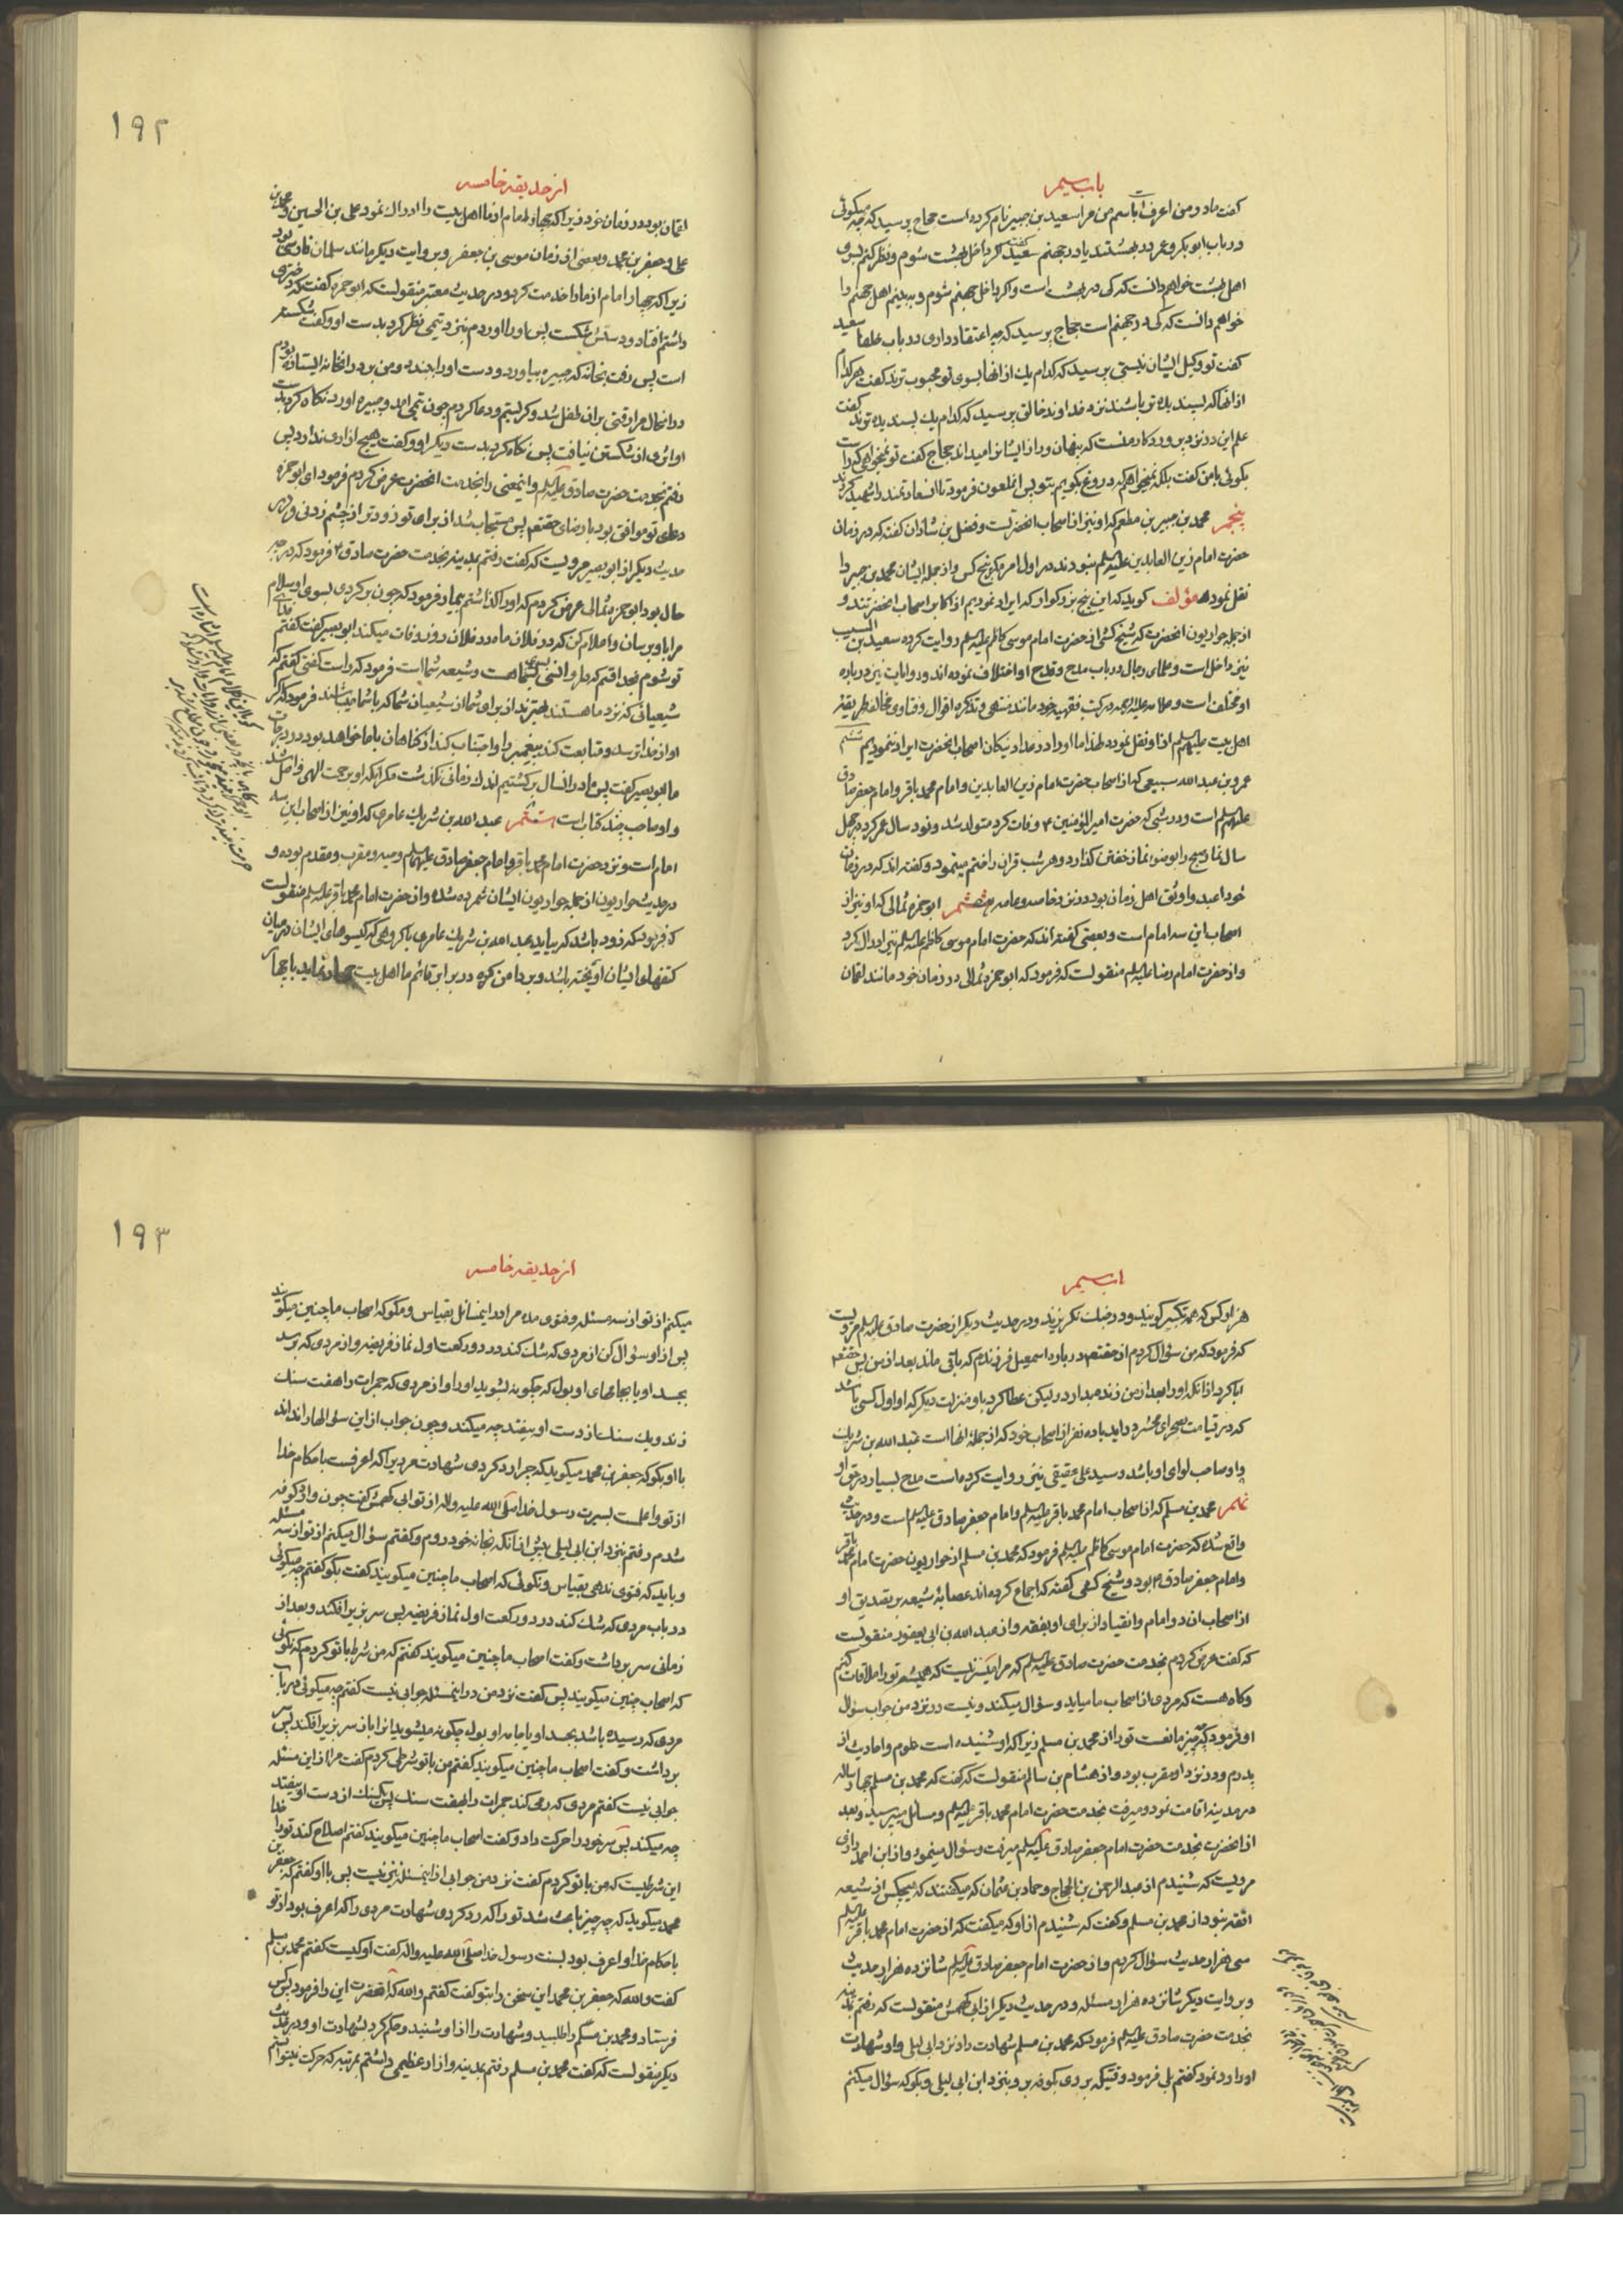 باب سیم
کفت مادر من اعرف است باسم من مرا سعید بن جبیر نام کرده است حجاج پرسید که چه میکوئی
در باب ابو بکر و عمر در بهشتند یا در جهنم سعید کفت اکر داخل بهشت شوم و نظر کنم بسوی
اهل بهشت خواهم دانست که کی در بهشت است و اکر داخل جهنم شوم و ببینم اهل جهنم را
خواهم دانست که کی در جهنم است حجاج پرسید که چه اعتقاد داری در باب خلفا سعید
کفت تو وکیل ایشان نیستی پرسید که کدام یک از انها بسوی تو محبوب ترند کفت هر کدام
از انها که پسندیده تر باشند نزد خداوند خالق پرسید که کدام یک پسندیده ترند کفت
علم این در نزد پروردکار منست که پنهان و راز ایشانرا میداند حجاج کفت تو نمیخواهی که راست
بکوئی با من کفت بلکه نمیخواهم که دروغ بکویم بتو پس انملعون فرمود تا انسعادتمند را شهید کردند
پنجم محمد بن جبیر بن مطعم که او نیز از اصحاب انحضرتست و فضل بن شاذان کفته که در زمان
حضرت امام زین العابدین علیه السلم نبودند در اول امر مکر پنج کس و از جمله ایشان محمد بن جبیر را
نقل نموده مؤلف کوید که این پنج بزرکوار که ایراد نمودیم از اکابر اصحاب انحضرتند و
از جمله حواریون انحضرت که شیخ کشی از حضرت امام موسی کاظم علیه السلم روایت کرده سعید بن المسیب
نیز داخل است و علمای رجال در باب مدح و قدح او اختلاف نموده اند و روایات نیز درباره
او مختلف است و علامه علیه الرحمه در کتب فقهیه خود مانند منتهی و تذکره اقوال و فتاوی مخالف طریقه
اهل بیت علیهم السلم از او نقل نموده لهذا ما او را در عداد نیکان اصحاب انحضرت ایراد ننمودیم ششم
عمرو بن عبد الله سبیعی که از اصحاب حضرت امام زین العابدین و امام محمد باقر و امام جعفر صادق
علیهم السلم است و در شبی که حضرت امیر المؤمنین ۴ وفات کرد متولد شد و نود سال عمر کرد و چهل
سال نماز صبح را بوضوء نماز خفتن کذارد و هر شب قران را ختم مینمود و کفته اند که در زمان
خود اعبد و اوثق اهل زمان بود در نزد خاصه و عامه هفتم ابو حمزه ثمالی که او نیز از
اصحاب این سه امام است و بعضی کفته اند که حضرت امام موسی کاظم علیه السلم نیز ادراک کرد
و از حضرت امام رضا علیه السلم منقولست که فرمود که ابو حمزه ثمالی در زمان خود مانند لقمان
۱۹۲
از حدیقه خامسه
لقمان بود در زمان خود زیرا که چهار امام از ما اهل بیت را ادراک نمود علی بن الحسین و محمد بن
علی و جعفر بن محمد و بعضی از زمان موسی بن جعفر و بروایت دیکر مانند سلمان فارسی بود
زیرا که چهار امام از ما را خدمت کرد و در حدیث معتبر منقولست که ابو حمزه کفت که دختری
داشتم افتاد و دستش شکست پس او را اوردم نزد تیمی نظر کرد بدست او و کفت شکسته
است پس رفت بخانه که جبیره بیاورد و دست او را ببندد و من بر در انخانه ایستاده بودم
در انحال مرا رقتی بر ان طفل شد و کریستم و دعا کردم چون تیمی امد و جبیره اورد نکاه کرد بدست
او اثری از شکستن نیافت پس نکاه کرد بدست دیکر او و کفت هیچ ازاری ندارد پس
رفتم بخدمت حضرت صادق علیه السلم و اینمعنی را بخدمت انحضرت عرض کردم فرمود ای ابو حمزه
دعای تو موافق بود با رضای حقتعالی پس مستجاب شد از برای تو زودتر از چشم زدنی و در
حدیث دیکر از ابو بصیر مرویست که کفت رفتم بمدینه بخدمت حضرت صادق ۴ فرمود که در چه
حال بود ابو حمزه ثمالی عرض کردم که او را کذاشتم بیمار فرمود که چون برکردی بسوی او سلام
مرا باو برسان و اعلام کن که در فلان ماه در فلان روز وفات میکند ابو بصیر کفت کفتم فدای
تو شوم بخدا قسم که ما را انسی بسیار باو هست و شیعه شما است فرمود که راست کفتی کفتم که
شیعیانی که نزد ما هستند بهترند از برای شما از شیعیان شما که با شما میباشند فرمود که اکر
او از خدا ترسد و متابعت کند پیغمبر را و اجتناب کند از کناهان با ما خواهد بود در درجات
ما ابو بصیر کفت پس ما در انسال برکشتیم اندک زمانی نکذشت مکر انکه او برحمت الهی واصل شد
و او صاحب چند کتاب است هشتم عبد الله بن شریک عامری که او نیز از اصحاب این سه
امام است و نزد حضرت امام محمد باقر و امام جعفر صادق علیهما السلم وجیه و مقرب و مقدم بوده و
در حدیث حواریون از جمله حواریون ایشان شمرده شده و از حضرت امام محمد باقر علیه السلم منقولست
که فرمود که زود باشد که بیاید عبد الله بن شریک عامری با کروهی که کیسوهای ایشان در میان
کتفهای ایشان اویخته باشد و بر دامن کوه در برابر قائم ما اهل بیت جهاد نماید با چهار
باب سیم
هزار کس که همه تکبیر کویند و در رجعت نکریزند و در حدیث دیکر از حضرت صادق علیه السلم مرویست
که فرمود که من سؤال کردم از حقتعالی درباره اسمعیل فرزندم که باقی ماند بعد از من پس حقتعالی
ابا کرد از انکه او را بعد از من زنده بدارد و لیکن عطا کرد باو منزلت دیکر که او اول کسی باشد
که در قیامت بصحرای محشر در اید با ده نفر از اصحاب خود که از جمله انها است عبد الله بن شریک
و او صاحب لوای او باشد و سید علی عقیقی نیز روایت کرده است مدح بسیار در حق او
نهم محمد بن مسلم که از اصحاب امام محمد باقر علیه السلم و امام جعفر صادق علیه السلم است و در حدیث
واقع شده که حضرت امام موسی کاظم علیه السلم فرمود که محمد بن مسلم از حواریون حضرت امام محمد باقر
و امام جعفر صادق ۴ بود و شیخ کشی کفته که اجماع کرده اند عصابه شیعه بر تصدیق او
از اصحاب ان دو امام و انقیاد از برای او بفقه و از عبد الله بن ابی یعفور منقولست
که کفت عرض کردم بخدمت حضرت صادق علیه السلم که مرا میسر نیست که همیشه تو را ملاقات کنم
و کاه هست که مردی از اصحاب ما میاید و سؤال میکند و نیست در نزد من جواب سؤال
او فرمود که چه چیز مانعست تو را از محمد بن مسلم زیرا که او شنیده است علوم و احادیث از
پدرم و در نزد او مقرب بود و از هشام بن سالم منقولست که کفت که محمد بن مسلم چهار ساله
در مدینه اقامت نمود و میرفت بخدمت حضرت امام محمد باقر علیه السلم و مسائل میپرسید و بعد
از انحضرت بخدمت حضرت امام جعفر صادق علیه السلم میرفت و سؤال مینمود و از ابن احمد رازی
مرویست که شنیدم از عبد الرحمن بن الحجاج و حماد بن عثمان که میکفتند که هیچکس از شیعه
افقه نبود از محمد بن مسلم و کفت که شنیدم از او که میکفت که از حضرت امام محمد باقر علیه السلم
سی هزار حدیث سؤال کردم و از حضرت امام جعفر صادق علیه السلم شانزده هزار حدیث
و بروایت دیکر شانزده هزار مسئله و در حدیث دیکر از ابی کهمس منقولست که رفتم بمدینه
بخدمت حضرت صادق علیه السلم فرمود که محمد بن مسلم شهادت داد نزد ابن ابی لیلی و او شهادت
او را رد نمود کفتم بلی فرمود وقتیکه بروی بکوفه برو بنزد ابن ابی لیلی و بکو که سؤال میکنم
۱۹۳
از حدیقه خامسه
میکنم از تو از سه مسئله و فتوی مده مرا در اینمسائل بقیاس و مکو که اصحاب ما چنین میکویند
پس از او سؤال کن از مردی که شک کند در دو رکعت اول نماز فریضه و از مردی که برسد
بجسد او یا بجامهای او بول که چکونه بشوید او را و از مردی که جمرات را هفت سنک
زند و یک سنک از دست او بیفتد چه میکند و چون جواب از این سؤالها را نداند
با او بکو که جعفر بن محمد میکوید که چرا رد کردی شهادت مردیرا که اعرفست باحکام خدا
از تو و اعلمست بسیرت رسول خدا صلی الله علیه و اله از تو ابی کهمس کفت چون وارد کوفه
شدم رفتم نزد ابن ابی لیلی پیش از انکه بخانه خود روم و کفتم سؤال میکنم از تو از سه مسئله
و باید که فتوی ندهی بقیاس و نکوئی که اصحاب ما چنین میکویند کفت بکو کفتم چه میکوئی
در باب مردی که شک کند در دو رکعت اول نماز فریضه پس سر بزیر افکند و بعد از
زمانی سر برداشت و کفت اصحاب ما چنین میکویند کفتم که من شرط با تو کردم که نکوئی
که اصحاب چنین میکویند پس کفت نزد من در اینمسئله جوابی نیست کفتم چه میکوئی در باب
مردی که رسیده باشد بجسد او یا جامه او بول چکونه میشوید انرا باز سر بزیر افکند پس سر
برداشت و کفت اصحاب ما چنین میکویند کفتم من با تو شرطی کردم کفت مرا از این مسئله
جوابی نیست کفتم مردی که رمی کند جمرات را بهفت سنک پس یکسنک از دست او بیفتد
چه میکند پس سر خود را حرکت داد و کفت اصحاب ما چنین میکویند کفتم اصلاح کند تو را خدا
این شرطیست که من با تو کردم کفت نزد من جوابی از اینمسئله نیز نیست پس با او کفتم که جعفر بن
محمد میکوید که چه چیز باعث شد تو را که رد کردی شهادت مردی را که اعرف بود از تو
باحکام خدا و اعرف بود بسنت رسول خدا صلی الله علیه و اله کفت او کیست کفتم محمد بن مسلم
کفت والله که جعفر بن محمد این سخن را بتو کفت کفتم والله که انحضرت این را فرمود پس کس
فرستاد و محمد بن مسلم را طلبید و شهادت را از او شنید و حکم کرد بشهادت او و در حدیث
دیکر منقولست که کفت محمد بن مسلم رفتم بمدینه و ازار عظیمی داشتم بمرتبه که حرکت نمیتوانستم